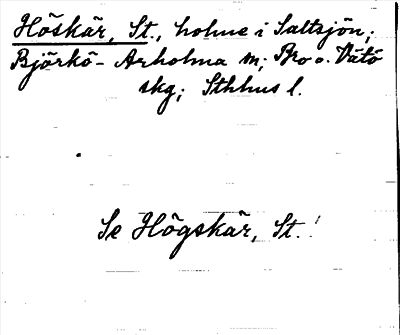 Höskär, St., holme i Saltsjön;
Björkö-Arholma sn; Bro o. Vätö
skg; Sthlms l.
Se Högskär, St.!